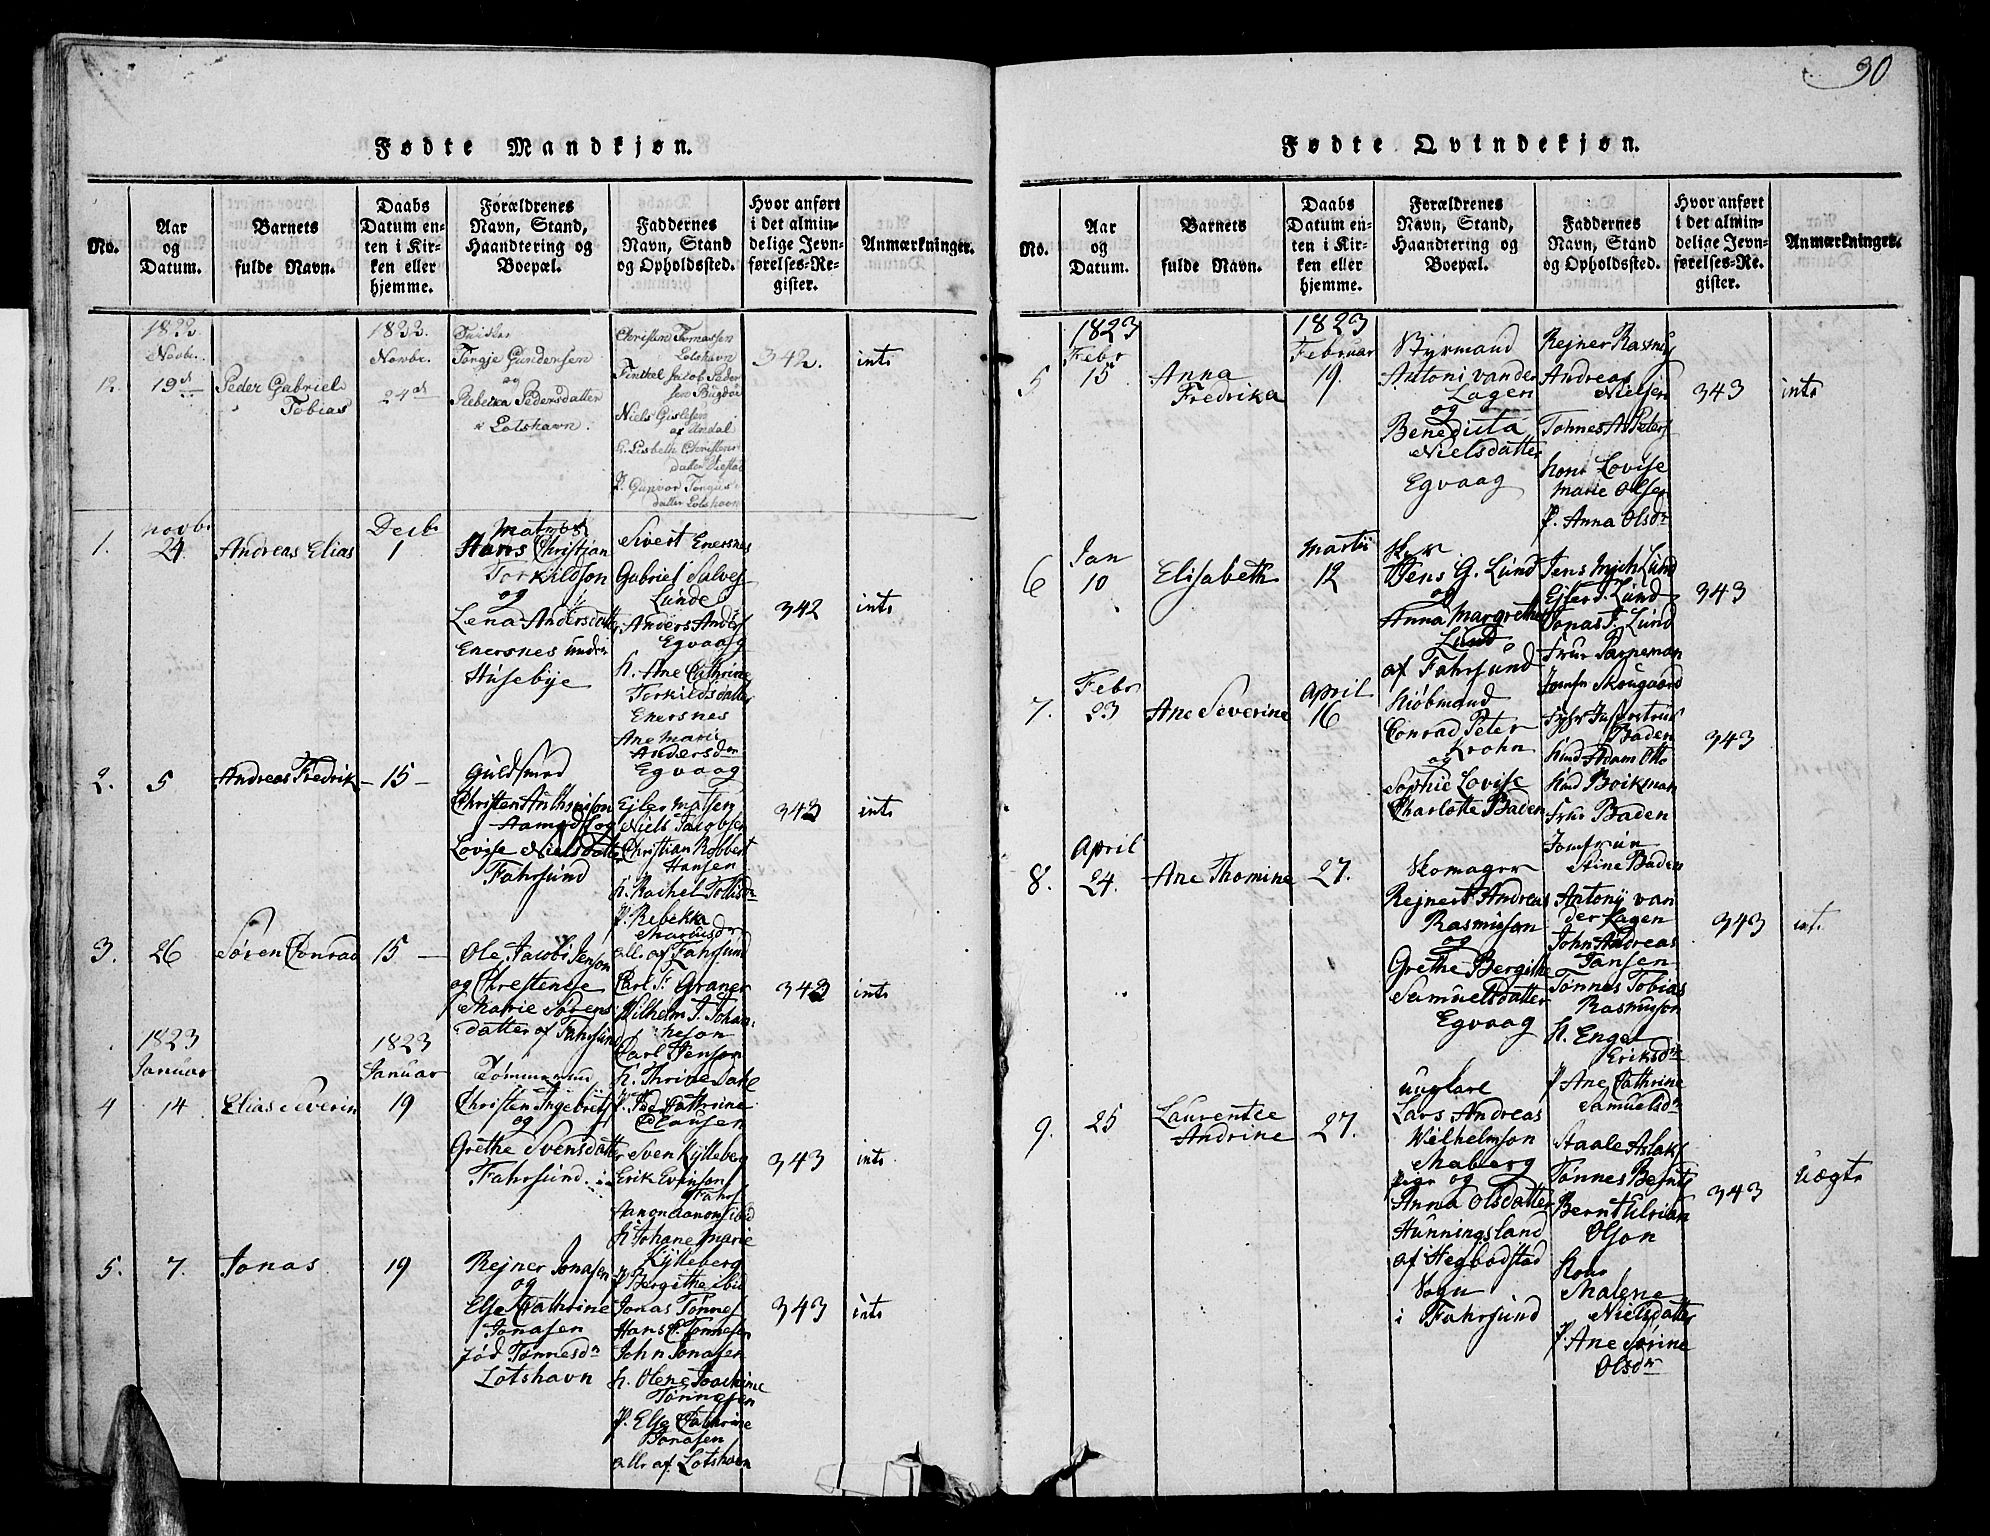 30
Fødte Mandkjøn.
No.
Aar
og
Datum.
Barnets
fulde Navn.
Daabs
Datum en-
ten i Kir-
ken eller
hjemme.
Forældrenes
Navn, Stand,
Haandtering og
Boepæl.
Faddernes
Navn, Stand
og Opholdssted.
Hvor anført
i det almin-
delige Jevn-
førelses-Re-
gister.
Anmærkninger.
12.
1822
Novbr.
19d
Peder Gabriel
Tobias
1822.
Novbr.
24d
Torgje Gundersen
og
Rebecca Pedersdatter
Lotshavn.
Christen Tomassen
Lotshavn
Jacob Peder
sen Bugdøe
Niels Gislesen
af Undal
k. Lisbeth Christens
datter
P. Gunvor Torgus
datter Lotshavn
342.
ints
1.
Novbr
24.
Andreas Elias
Decbr
1
Matros
Hans Christjan
Torkildson
og
Lena Andersdatter
Enersnes under
Husebye
Sivert Enersnes
Gabriel Salves
Lunde
Anders Anders
Egvaag
k. Ane Cathrine
Torkildsdatter
Enersnes
Ane Marie
Andersdr
Egvaag
342
ints
2.
5
Andreas Fredrik
15
Guldsmed
Christen Anthonison
Aamodt og
Lovise Nielsdatter
Fahrsund
Ejler Matsen
Niels Jacobsen
Christian Robbert
Hansen
k. Rachel Tollisdr
P. Rebekka
Marcusdr
alle af Fahrsund
343
ints
3.
26
Søren Conrad
15
Ole Jacob Jenson
og Chrestense
Marie Sørens
datter af Fahrsund
Carl T. Graner
Wilhelm T. Johan
neson
Carl Jenson
k. Thrine Dahl
P. Cathrine
Clausen
343
ints
1823
Januar
4
14
Elias Severin
1823
Januar
19
Tømmermd
Christen Ingebrets
og
Grethe Svensdatter
Fahrsund
Sven Kylleberg
Erik Evinson
Fahrs
k. Johane Marie
Kylleberg
P. Bergithe ibid
343
ints
5.
7.
Jonas
19
Rejner Jonasen
og
Else Cathrine
Jonasen
fød Tønnesdr
Lotshavn
Jonas Tønnes
Hans C. Tønnesen
John Jonasen
k. Olene Joachime
Tønnesen
P. Else Cathrine
Jonasen
alle af Lotshavn
343
ints
Fødte Qvindekjøn.
No.
Aar
og
Datum.
Barnets
fulde Navn.
Daabs
Datum en-
ten i Kir-
ken eller
hjemme.
Forældrenes
Navn, Stand,
Haandtering og
Boepæl.
Faddernes
Navn, Stand
og Opholdssted.
Hvor anført
i det almin-
delige Jevn-
førelses-Re-
gister.
Anmærkninger.
5
1823
Febr
15
Anna
Fredrika
1823
Februar
19.
Styrmand
Antoni vander
Lagen
og
Benedicta
Nielsdatter
Egvaag
Rejner Rasmus
Andreas
Nielsen
Tønnes A. Peters
kone Lovise
Marie Olsen
P. Anna Olsdr
343
ints
6
Jan
10
Elisabeth
Martii
12
Jens G. Lund
og
Anna Margrethe
Lund
af Fahrsund
Jens Mich Lund
Ejlert Lund
Jonas T. Lund
Frue
Jomfr Skougaard
343
7.
Febr
23
Ane Severine
April
16
Kiøbmand
Conrad Peter
Krohn
og
Sophie Lovise
Charlotte Baden
Baden
Adam Otto
Boikman
Frue Baden
Jomfrue
Stine Baden
343
8.
April
24.
Ane Thomine
27.
Skomager
Rejnert Andreas
Rasmusson
og
Grethe Bergithe
Samuelsdatter
Egvaag
Antonij van
der Lagen
John Andreas
Jansen
Tønnes Tobias
Rasmusson
k. Engel
Eriksdr
P. Ane Cathrine
Samuelsdr
343
ints
9.
25
Laurentse
Andrine
27.
ungkarl
Lars Andreas
Wilhelmson
Maberg
Pige og
Anna Olsdatter
Hunningsland
af Hegbodstad
Sogn
i Fahrsund
Staale Aslaks
Tønnes Bernts
Bernt Ulrian
Olson
Kone
Malene
Nielsdatter
P. Ane Sørine
Olsdr
343
Uægte